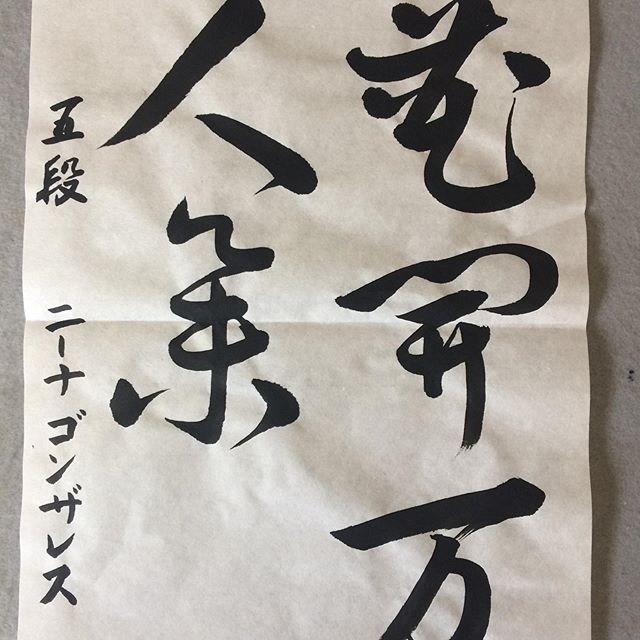 花開万
人集
五段 ニーナ ゴンザレス